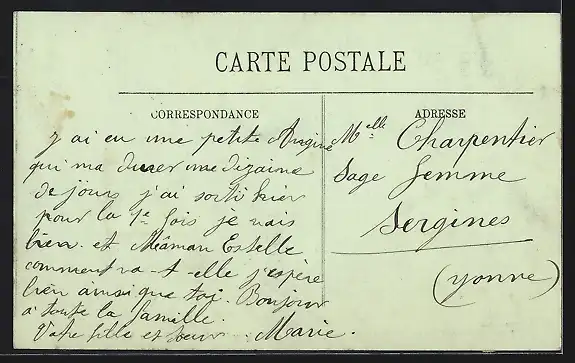 CARTE POSTALE
CORRESPONDANCE
j'ai eu une petite Angine
qui ma durer une dizaine
de jours j'ai sorti hier
pour la 1e fois je vais
bien. et Mâman Estelle
comment va-t-elle j'espère
bien ainsi que toi. Bonjour
à toute la famille.
Votre fille et sœur Marie.
ADRESSE
Melle Charpentier
Sage femme
Sergines
(Yonne)